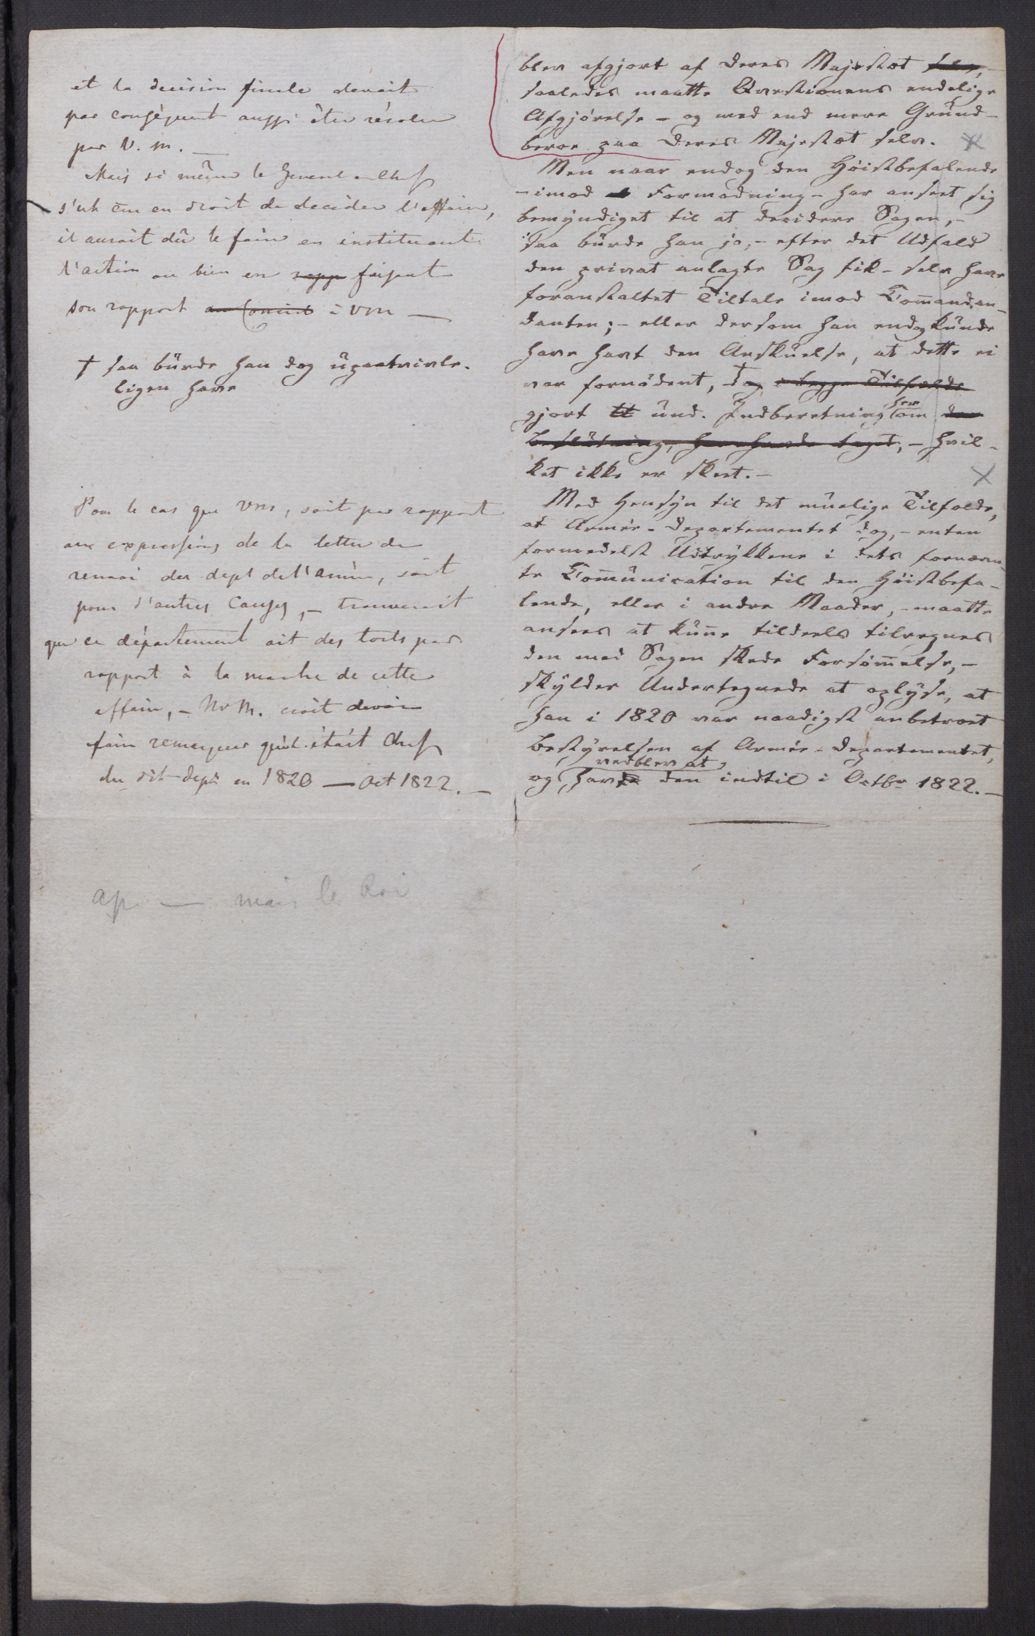 et la decision finale devait
par conséquent aussi être résolue
par V. M. —
Mais si même le General en Chef
s'est cru en droit de decider l'affaire,
il aurait dû le faire en instituant
l'action ou bien en rapp faisant
son rapport au Conseil à VM —
† saa burde han dog upaatvivle-
ligen have
Pour le cas que VM, soit par rapport
aux expressions de la lettre de
renvoi du dept de l'armée, soit
pour d'autres causes, — trouverait
que ce département ait des torts par
rapport à la marche de cette
affaire, — Mr M. croit devoir
faire remarquer qu'il était Chef
du dit depu en 1820 — Oct 1822. —
ap — mais le Roi
blev afgjort af Deres Majestæt selv,
saaledes maatte Qvæstionens endelige
Afgjørelse — og med end mere Grund —
beroe paa Deres Majestæt selv.
Men naar endog den Høistbefalende
— imod Formodning — har anseet sig
bemyndiget til at decidere Sagen, —
saa burde han jo, — efter det Udfald
den privat anlagte Sag fik — selv have
foranstaltet Tiltale imod Comman­dan-
danten; — eller dersom han endog kunde
have havt den Anskuelse, at dette ei
var fornødent, † og i begge Tilfælde
gjort tt und. Indberetning herom den
Beslutning, han havde taget, — hvil-
ket ikke er skeet. —
Med Hensyn til det muelige Tilfælde,
at Armée-Departementet dog, — enten
formedelst Udtrykkene i dets fornævn-
te Communication til den Høistbefa-
lende, eller i andre Maader, — maatte
ansees at kunne tildeels tilregnes
den med Sagen skede Forsømmelse, —
skylder Undertegnede at oplyse, at
han i 1820 var naadigst anbetroet
Bestyrelsen af Armée-Departementet,
vedblev at
og havde den indtil i Octbr 1822. —